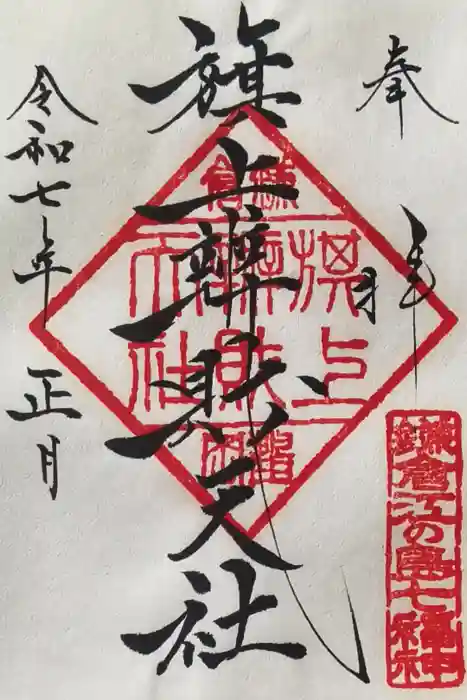 奉拝
旗上辨財天社
令和七年正月
鎌倉
旗上
辨財
天社
鎌倉江の島七福神